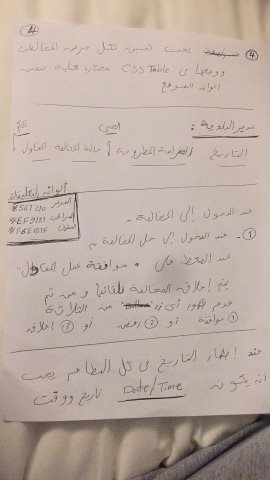 ④ يجب تحسين شكل عرض المخالفات
ووضعها في CSS Table مختارة بعناية بنفس
ألوان الموقع
مدير البلدية :
التاريخ الغرامة المطروحة حالة المخالفة المقاول
عند الدخول إلى المخالفة -
①- عند الدخول إلى حل المخالفة
عند الضغط على " موافقة عمل المقاول "
يتم إغلاق المخالفة تلقائياً ومن ثم
عدم ظهور أي زر من الثلاثة
① موافقة أو ② رفض أو ③ إغلاق
عند إظهار التاريخ في كل النظام يجب
أن يكون Date/Time تاريخ ووقت